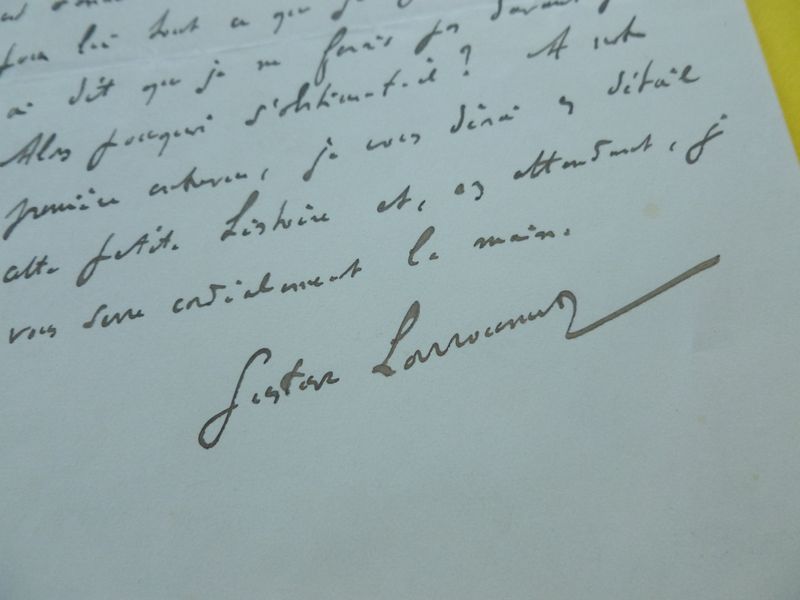 pour lui tout ce que j
ai dit que je ne ferais pas davant
Alors pourquoi s'obstine-t-il ? A notre
première entrevue, je vous dirai en détail
cette petite histoire et, en attendant, je
vous serre cordialement la main.
Gustave Larroumet